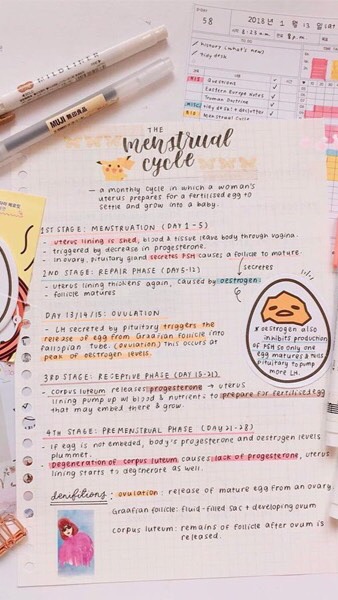 WILDLINER
MUJI 無印良品
DATE
58
2018年 1月 13日
history (what's new)
tidy desk
questions
Eastern Europe notes
Truman Doctrine
tidy desk + declutter
Menstrual Cycle
THE
menstrual
cycle
— a monthly cycle in which a woman's
uterus prepares for a fertilised egg to
settle and grow into a baby.
1ST STAGE: MENSTRUATION (DAY 1-5)
- uterus lining is shed, blood & tissue leave body through vagina.
- triggered by decrease in progesterone.
- in ovary, pituitary gland secretes FSH causes a follicle to mature.
(secretes
2ND STAGE: REPAIR PHASE (DAY 5-12)
- uterus lining thickens again, caused by oestrogen
- follicle matures
DAY 13/14/15: OVULATION
- LH secreted by pituitary triggers the
release of egg from Graafian follicle into
fallopian tube. (ovulation) this occurs at
peak of oestrogen levels.
* oestrogen also
inhibits production
of FSH so only one
egg matures & tells
pituitary to pump
more LH.
3RD STAGE: RECEPTIVE PHASE (DAY 15-21)
- corpus luteum releases progesterone → uterus
lining pump up w/ blood & nutrients to prepare for fertilised egg
that may embed there & grow.
4TH STAGE: PREMENSTRUAL PHASE (DAY 21-28)
- if egg is not embeded, body's progesterone and oestrogen levels
plummet.
- Degeneration of corpus luteum causes lack of progesterone, uterus
lining starts to degenerate as well.
definitions: ovulation: release of mature egg from an ovary.
Graafian follicle: fluid-filled sac + developing ovum
corpus luteum: remains of follicle after ovum is
released.